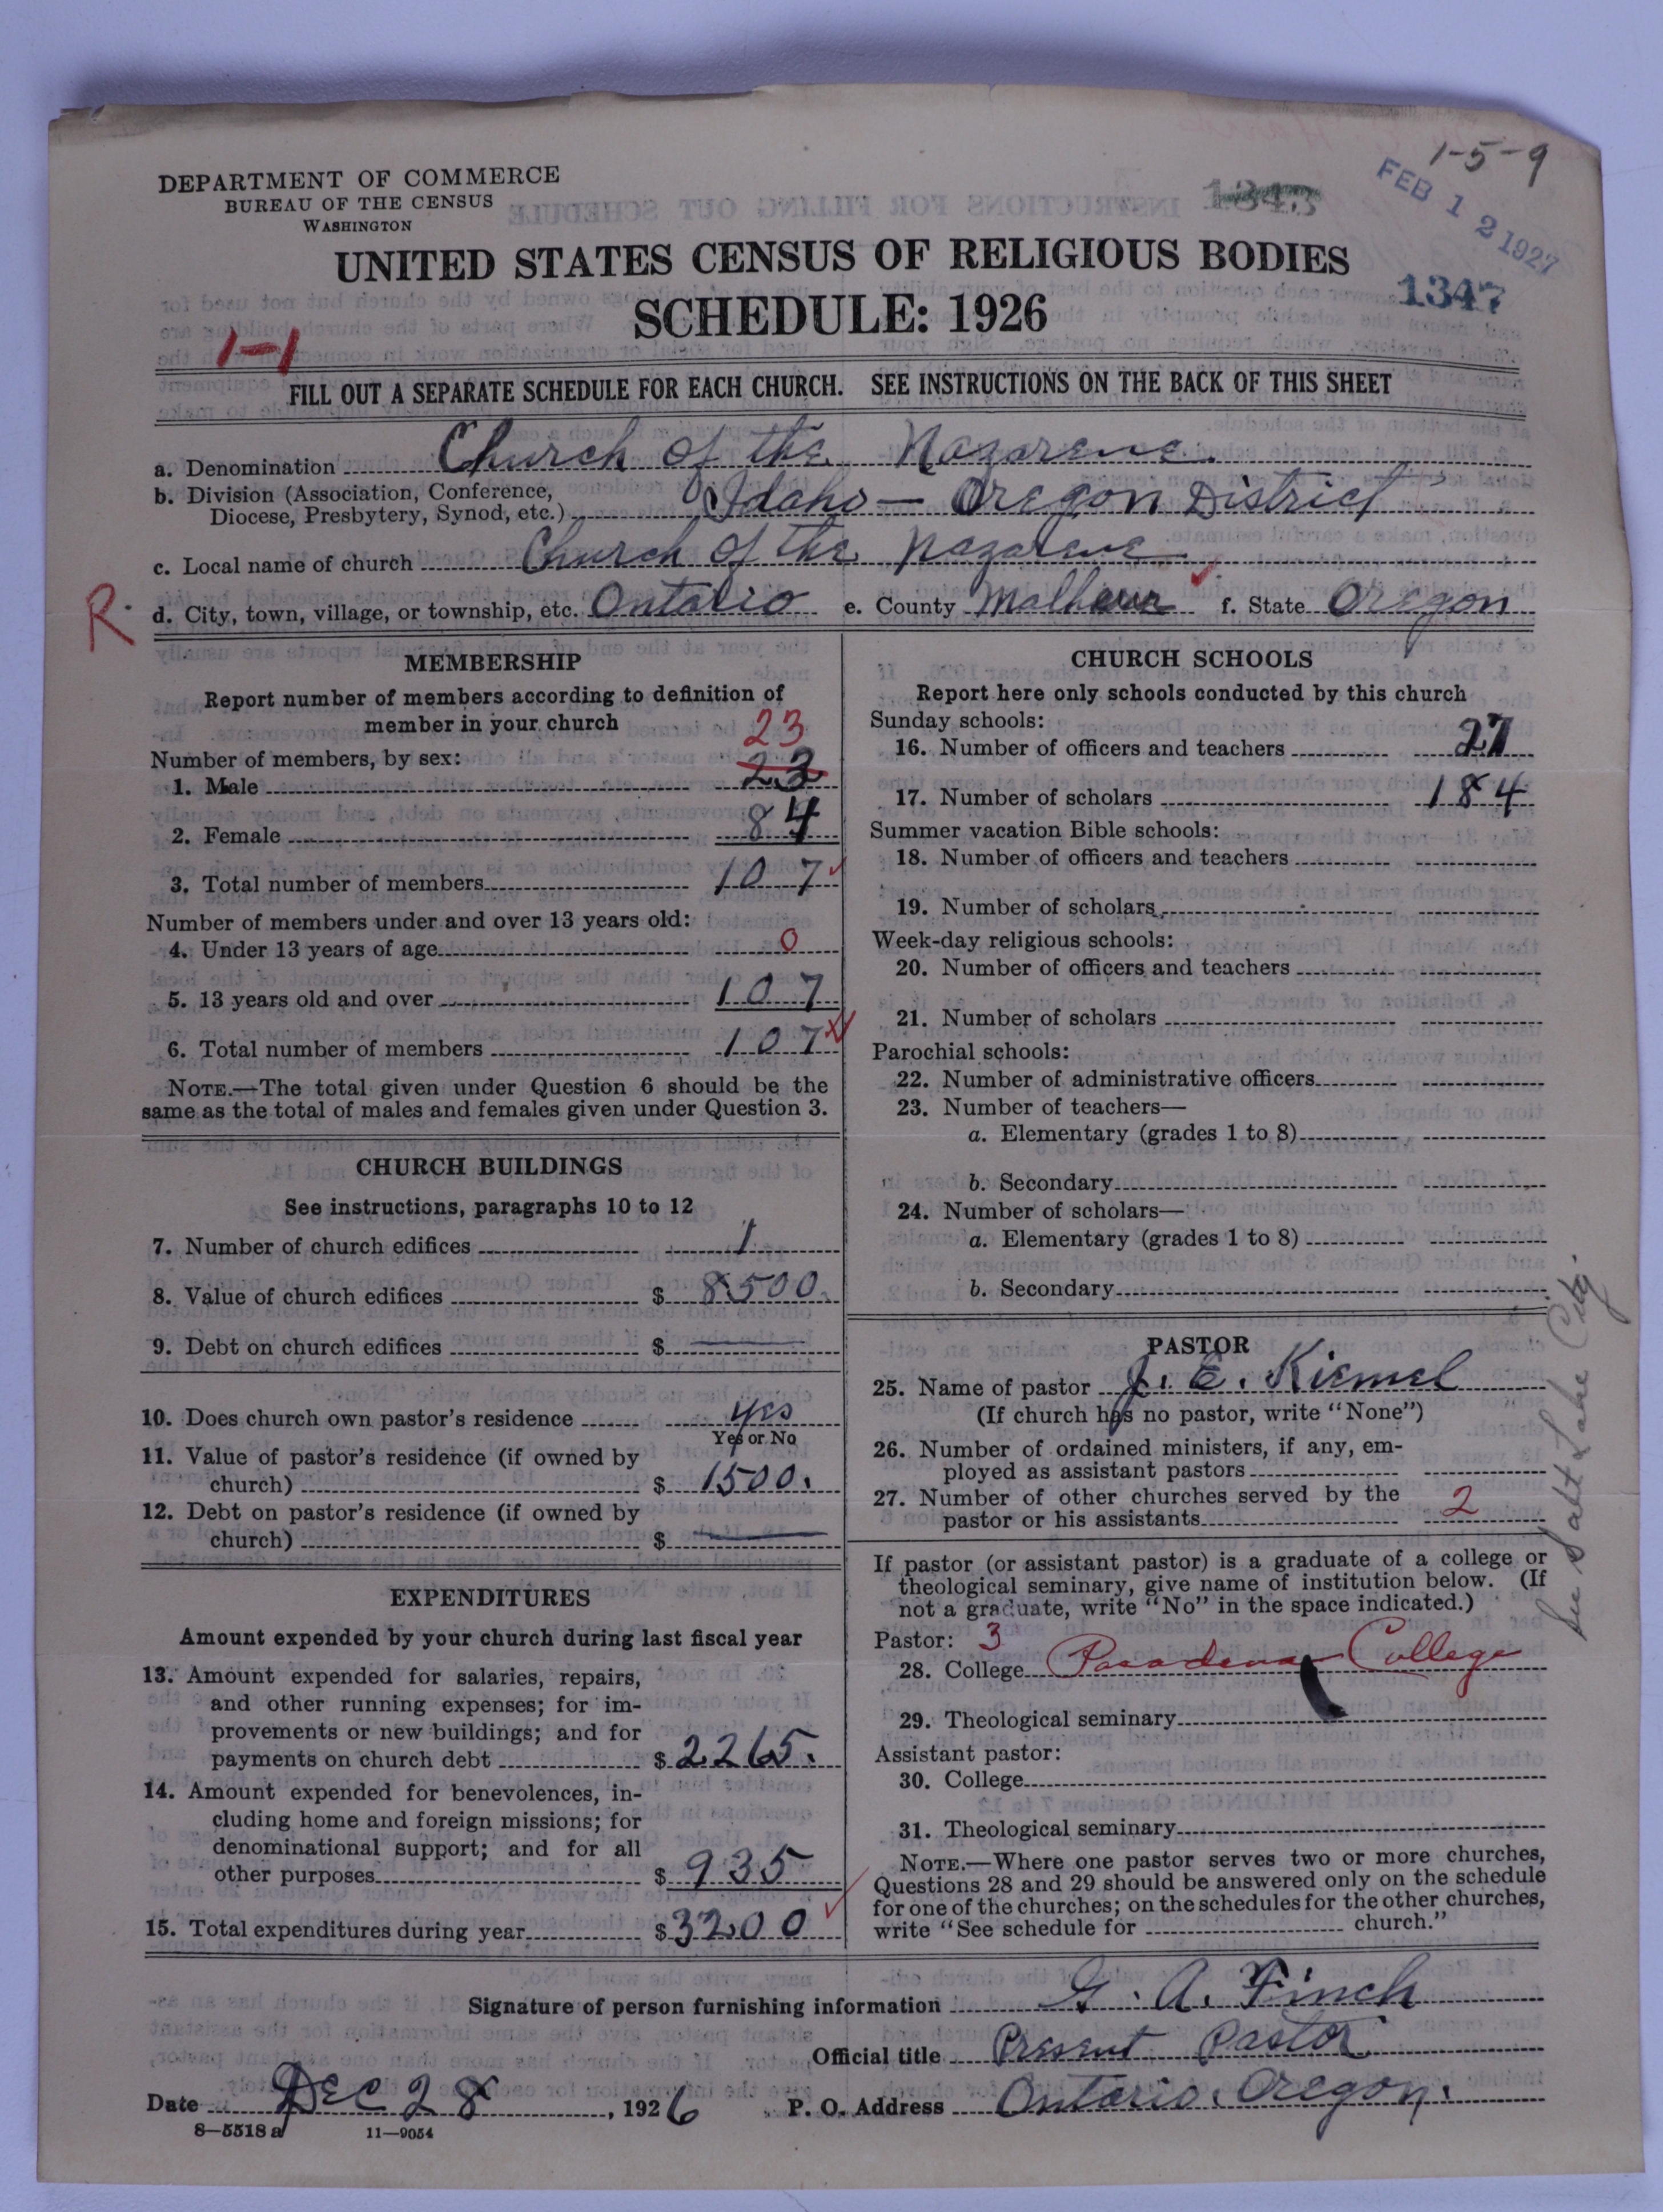 1-5-9
DEPARTMENT OF COMMERCE
BUREAU OF THE CENSUS
WASHINGTON
1343
FEB 12 1927
UNITED STATES CENSUS OF RELIGIOUS BODIES
1347
SCHEDULE: 1926
1-1
FILL OUT A SEPARATE SCHEDULE FOR EACH CHURCH. SEE INSTRUCTIONS ON THE BACK OF THIS SHEET
a. Denomination Church of the Nazarene.
b. Division (Association, Conference,
Diocese, Presbytery, Synod, etc.) Idaho-Oregon District
c. Local name of church Church of the Nazarene
R. d. City, town, village, or township, etc. Ontario e. County Malheur f. State Oregon
MEMBERSHIP
Report number of members according to definition of
member in your church
23
Number of members, by sex:
1. Male 23
2. Female 84
3. Total number of members 107
Number of members under and over 13 years old:
4. Under 13 years of age 0
5. 13 years old and over 107
6. Total number of members 107
NOTE.—The total given under Question 6 should be the
same as the total of males and females given under Question 3.
CHURCH BUILDINGS
See instructions, paragraphs 10 to 12
7. Number of church edifices 1
8. Value of church edifices $ 8500.
9. Debt on church edifices $ —
10. Does church own pastor's residence yes
Yes or No
11. Value of pastor's residence (if owned by
church) $ 1500.
12. Debt on pastor's residence (if owned by
church) $ —
EXPENDITURES
Amount expended by your church during last fiscal year
13. Amount expended for salaries, repairs,
and other running expenses; for im-
provements or new buildings; and for
payments on church debt $ 2265.
14. Amount expended for benevolences, in-
cluding home and foreign missions; for
denominational support; and for all
other purposes $ 935
15. Total expenditures during year $ 3200
CHURCH SCHOOLS
Report here only schools conducted by this church
Sunday schools:
16. Number of officers and teachers 27
17. Number of scholars 184
Summer vacation Bible schools:
18. Number of officers and teachers
19. Number of scholars
Week-day religious schools:
20. Number of officers and teachers
21. Number of scholars
Parochial schools:
22. Number of administrative officers
23. Number of teachers—
a. Elementary (grades 1 to 8)
b. Secondary
24. Number of scholars—
a. Elementary (grades 1 to 8)
b. Secondary
PASTOR
25. Name of pastor J. E. Kiemel
(If church has no pastor, write "None")
26. Number of ordained ministers, if any, em-
ployed as assistant pastors
27. Number of other churches served by the
pastor or his assistants 2
See Salt Lake City.
If pastor (or assistant pastor) is a graduate of a college or
theological seminary, give name of institution below. (If
not a graduate, write "No" in the space indicated.)
Pastor: 3
28. College Pasadena College
29. Theological seminary
Assistant pastor:
30. College
31. Theological seminary
NOTE.—Where one pastor serves two or more churches,
Questions 28 and 29 should be answered only on the schedule
for one of the churches; on the schedules for the other churches,
write "See schedule for church."
Signature of person furnishing information G. A. Finch
Official title Present Pastor
Date Dec 28, 1926 P. O. Address Ontario, Oregon.
8—5518 a 11—9054